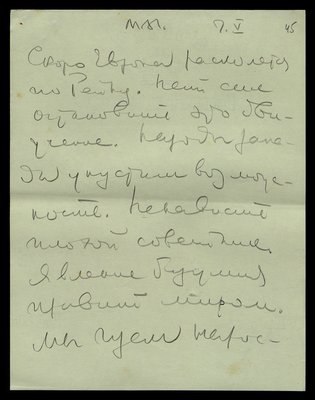 МАЙ. 7.V 45
Скоро Европа расколется
по Рейну. Нет сил
остановить это дви-
жение. Народы Запа-
да упустили возмож-
ность. Ненависть
плохой советник.
Явление будучи
правит миром.
Мы идем